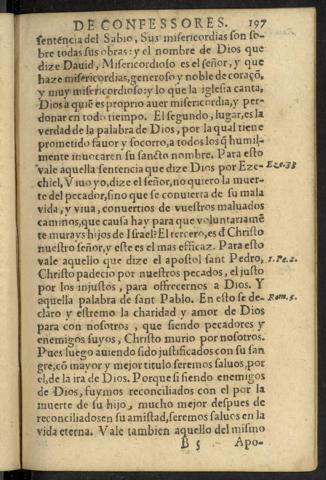 DE CONFESSORES. 197
sentencia del Sabio, Sus misericordias son so-
bre todas sus obras: y el nombre de Dios que
dize Dauid, Misericordioso es el señor, y que
haze misericordias, generoso y noble de coraçõ,
y muy misericordioso: y lo que la iglesia canta,
Dios a quiẽ es proprio auer misericordia, y per-
donar en todo tiempo. El segundo, lugar, es la
verdad de la palabra de Dios, por la qual tiene
prometido fauor y socorro, a todos los q̃ humil-
mente inuocaren su sancto nombre. Para esto
vale aquella sentencia que dize Dios por Eze- Eze.33
chiel, Viuo yo, dize el señor, no quiero la muer-
te del pecador, sino que se conuierta de su mala
vida, y viua, conuertios de vuestros maluados
caminos, que causa hay para que voluntariamẽ
te murays hijos de Israel? El tercero, es d̃ Christo
nuestro señor, y este es el mas efficaz. Para esto
vale aquello que dize el apostol sant Pedro, 1.Pe.2.
Christo padecio por nuestros pecados, el justo
por los injustos, para offrecernos a Dios. Y
aquella palabra de sant Pablo. En esto se de- Rom.5.
claro y estremo la charidad y amor de Dios
para con nosotros, que siendo pecadores y
enemigos suyos, Christo murio por nosotros.
Pues luego auiendo sido justificados con su san
gre, cõ mayor y mejor titulo seremos saluos, por
el, de la ira de Dios. Porque si siendo enemigos
de Dios, fuymos reconciliados con el por la
muerte de su hijo, mucho mejor despues de
reconciliados en su amistad, seremos saluos en la
vida eterna. Vale tambien aquello del mismo
B 5 Apo-